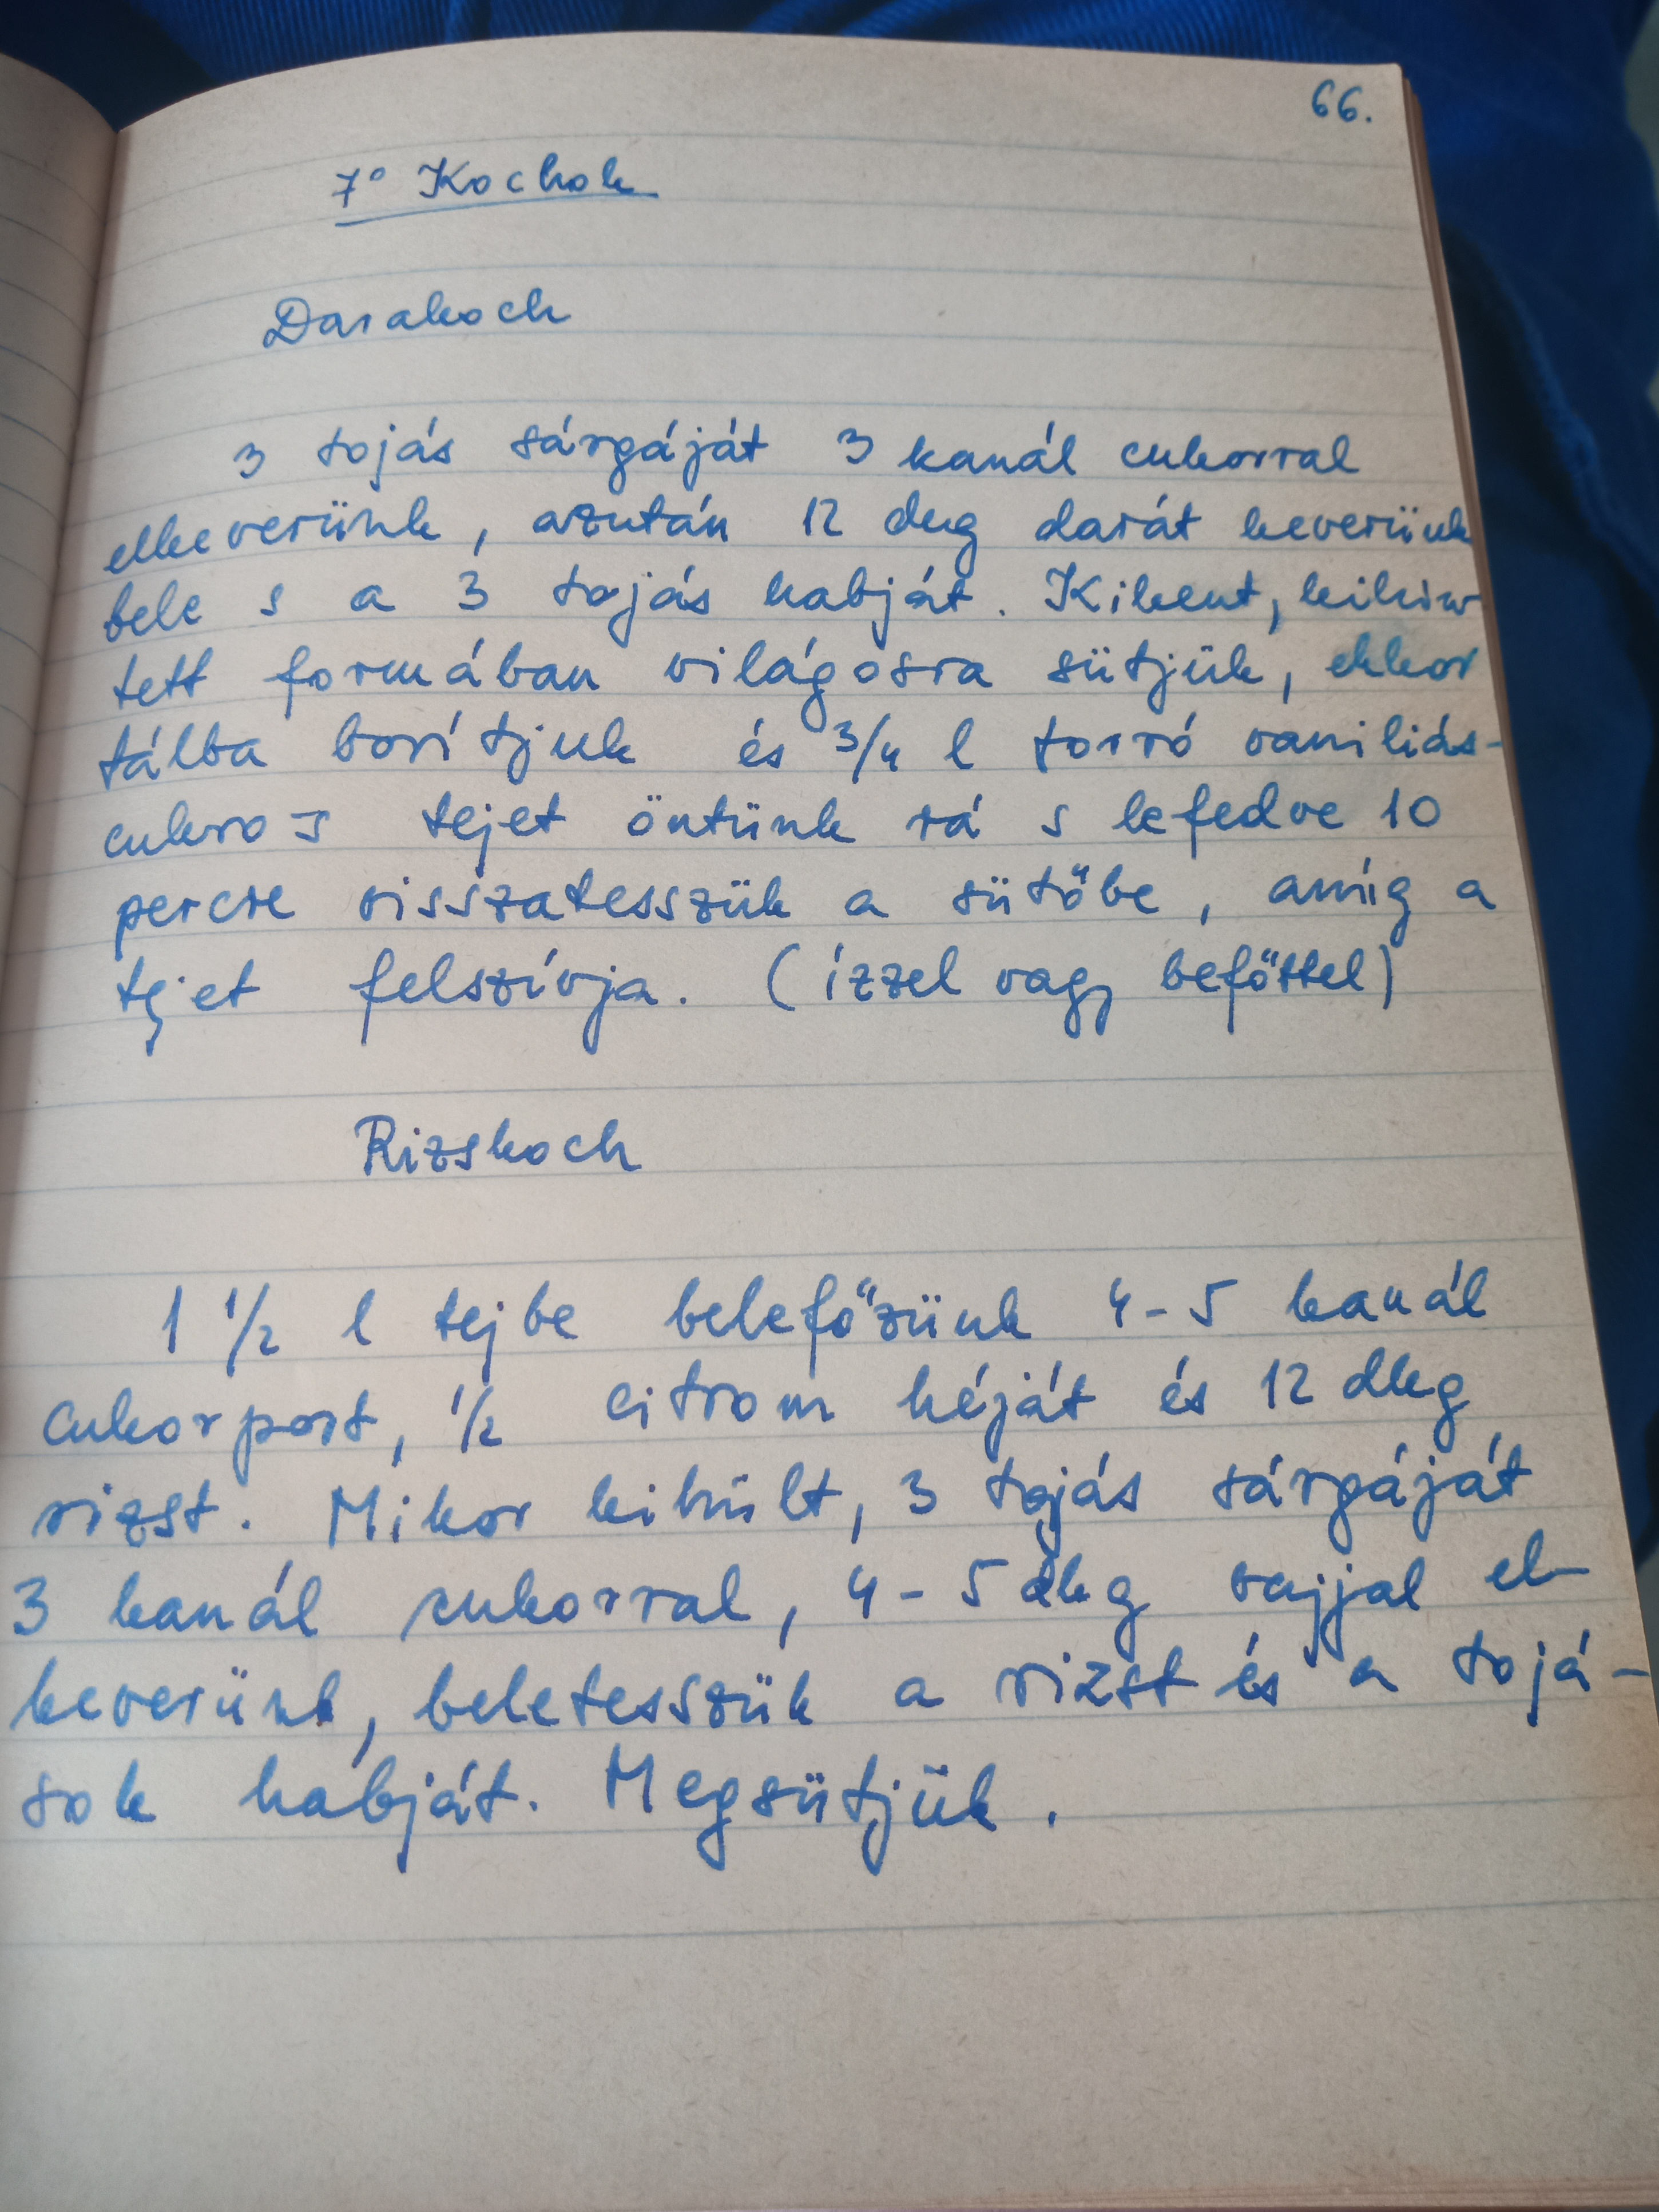 66.
7° Kochok
Darakoch
3 tojás sárgáját 3 kanál cukorral
elkeverünk, azután 12 dkg darát keverünk
bele s a 3 tojás habját. Kikent, kihin-
tett formában világosra sütjük, ekkor
tálba borítjuk és 3/4 l forró vaniliás-
cukros tejet öntünk rá s lefedve 10
percre visszatesszük a sütőbe, amíg a
tejet felszívja. (ízzel vagy befőttel)
Rizskoch
1 1/2 l tejbe belefőzünk 4-5 kanál
cukorport, 1/2 citrom héját és 12 dkg
rizst. Mikor kihűlt, 3 tojás sárgáját
3 kanál cukorral, 4-5 dkg vajjal el-
keverünk, beletesszük a rizst és a tojá-
sok habját. Megsütjük.